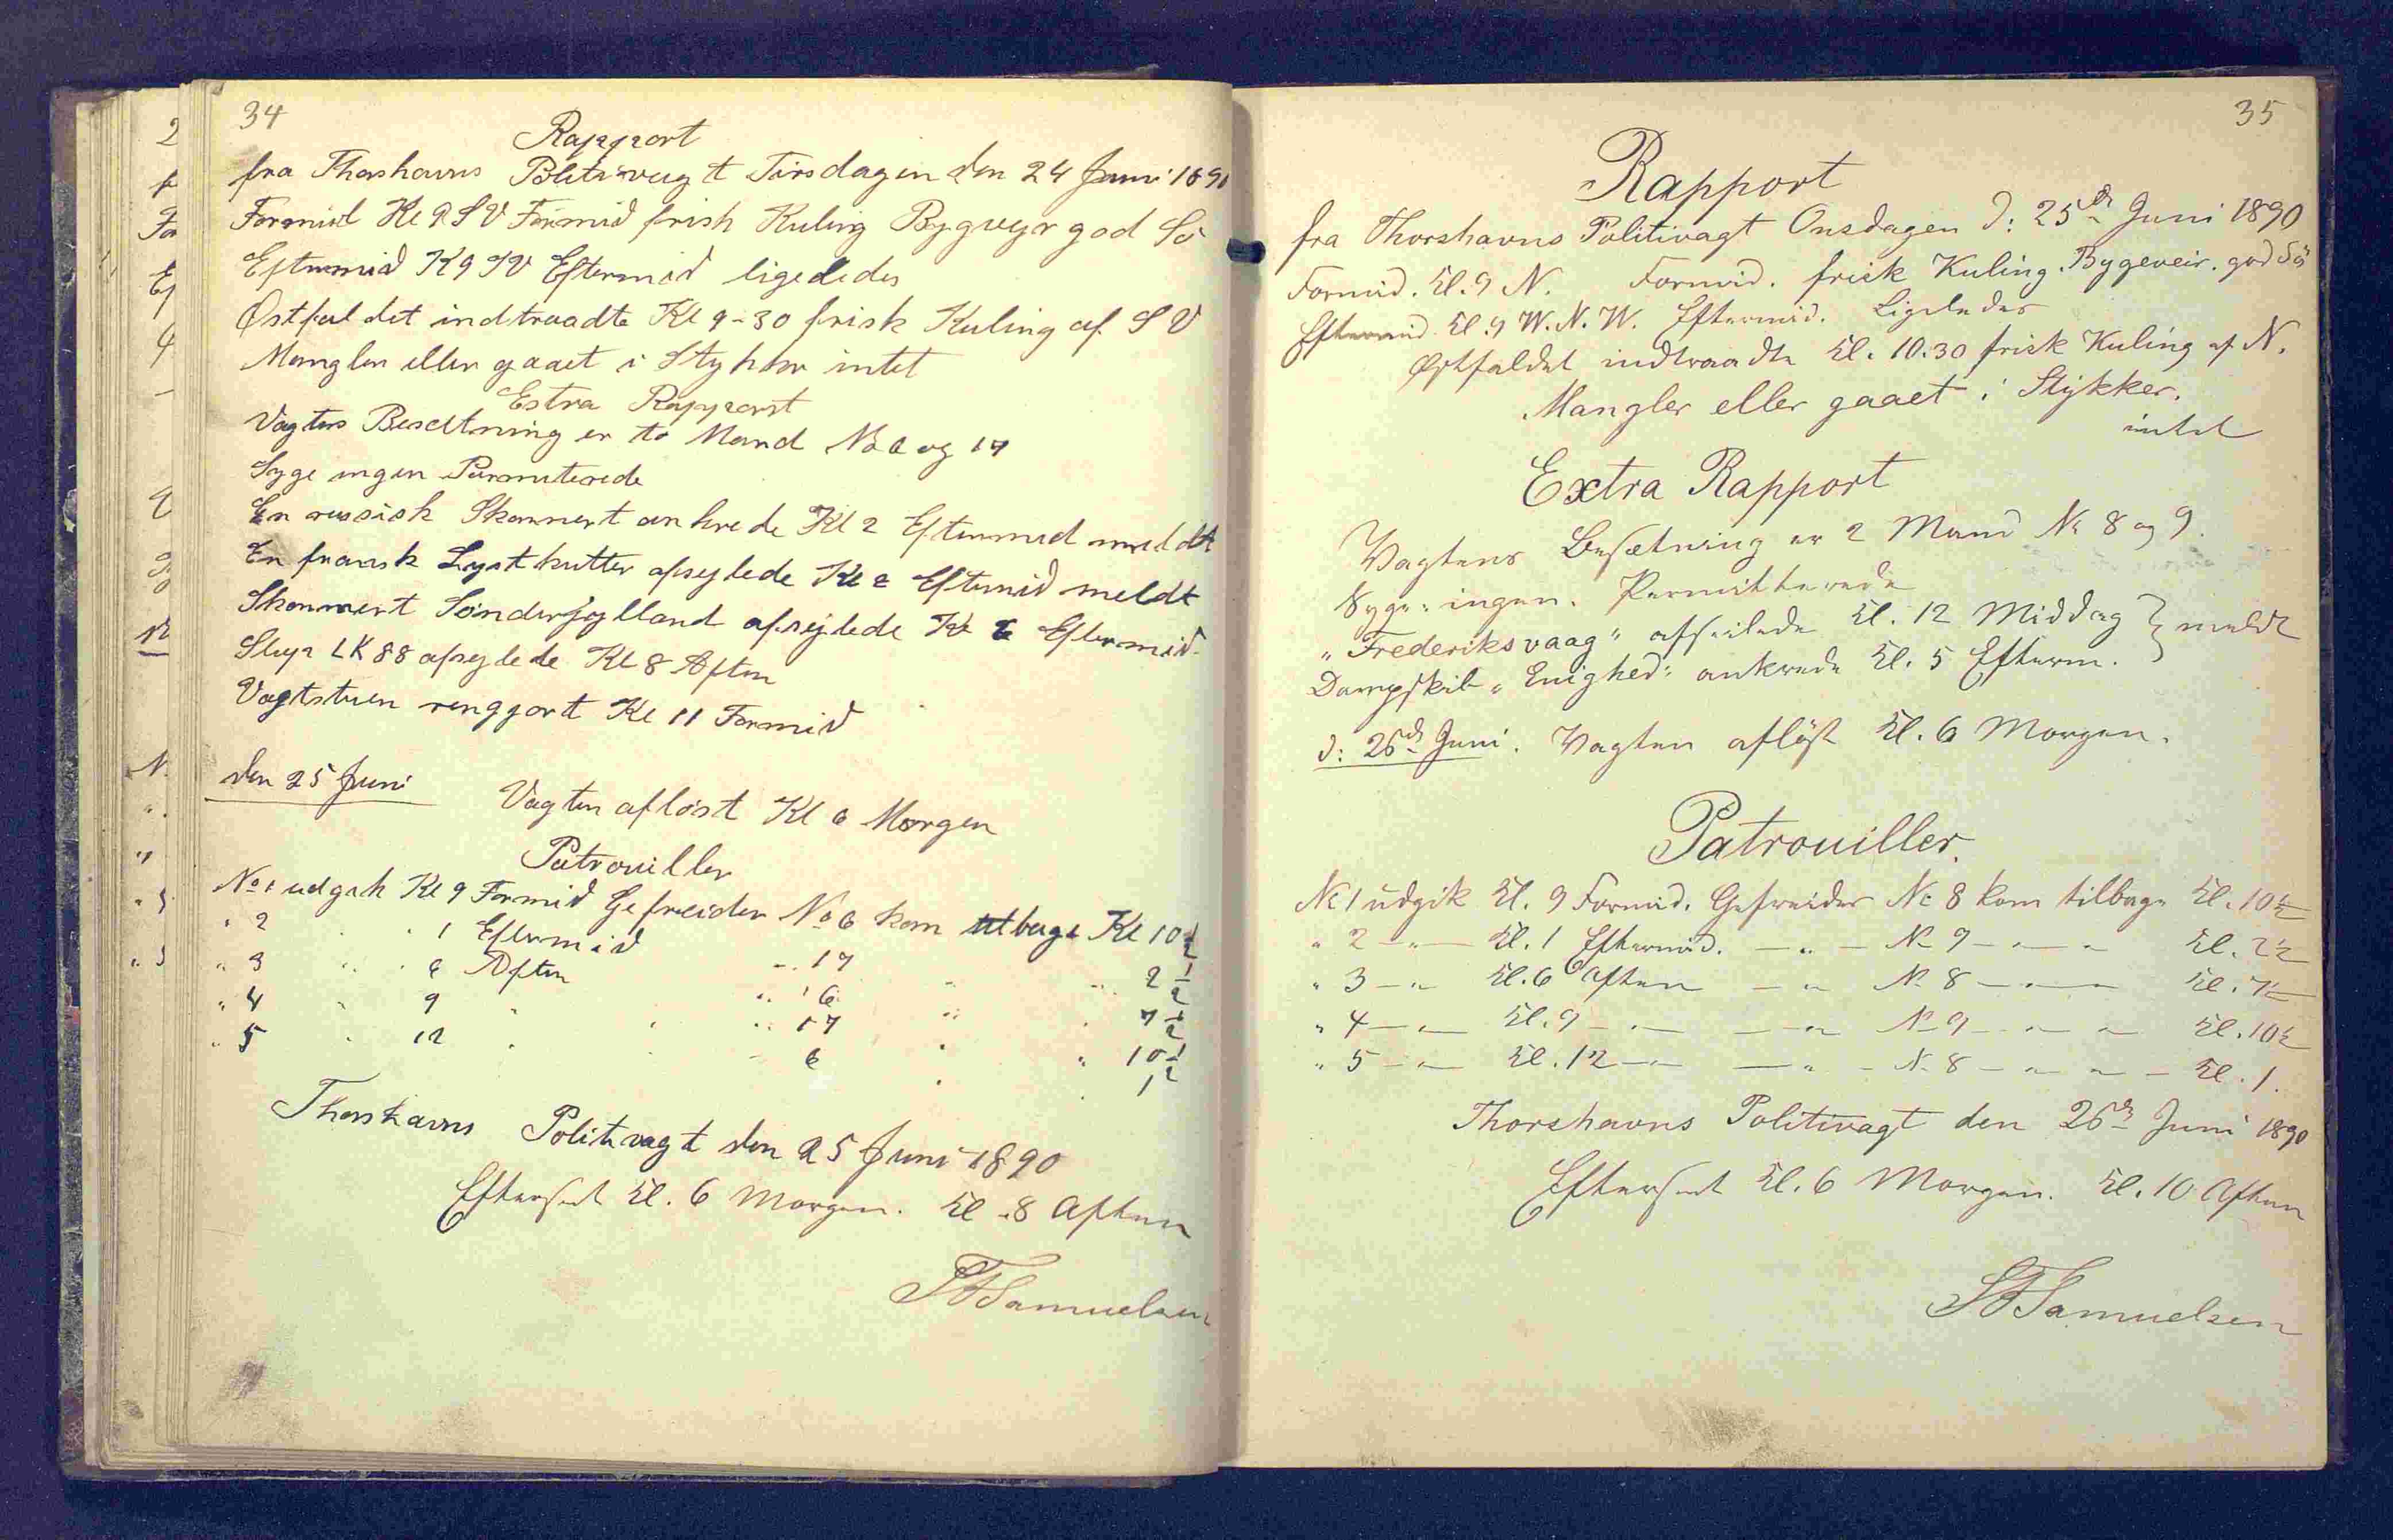 34
Rapport
fra Thorshavns Politivagt Tirsdagen den 24 Juni 1890
Formid Kl 9 SV Formid frisk Kuling Bygveyr god Sö
Eftermid K 9 SV Eftermid ligeledes
Østfaldet indtraadte Kl 9-30 frisk Kuling af SV
Mangler eller gaaet i Stykker intet
Estra Rapport
Vagtens Besetning er to Mand No 6 og 17
Syge ingen Permiterede
En russisk Skonnert ankrede Kl 2 Eftermid meldt
En fransk Lystkutter afsejlede Kl 2 Eftermid meldt
Skonnert Sønderjylland afsejlede Kl 6 Eftermid.
Slup LK 88 afsejlede Kl 8 Aften
Vagtstuen rengjort Kl 11 Formid
den 25 Juni Vagten afløst Kl 6 Morgen
Patrouiller
No 1 udgik Kl 9 Formid Gefreider No 6 kom tilbage Kl 10 1/2
" 2 " " 1 Eftermid - " 17 " " 2 1/2
" 3 " " 6 Aften " " 6 " " 7 1/2
" 4 " 9 " " " 17 " " 10 1/2
" 5 " 12 " " 6 " " 1
Thorshavns Politivagt den 25 Juni 1890
Efterseet Kl. 6 Morgen. Kl. 8 Aften
Samuelsen
35
Rapport
fra Thorshavns Politivagt Onsdagen d: 25de Juni 1890
Formid. Kl. 9 N. Formid. frisk Kuling. Bygeveir. god Sö
Eftermid Kl. 9 W.N.W. Eftermid. Ligeledes
Østfaldet indtraadte Kl. 10.30 frisk Kuling af N.
Mangler eller gaaet i Stykker.
intet
Extra Rapport
Vagtens Besætning er 2 Mand No 8 og 9.
Syge: ingen. Permitterede
"Frederiksvaag" afseilede Kl. 12 Middag } meldt
Dampskib "Enighed" ankrede Kl. 5 Efterm.
d: 26de Juni. Vagten afløst Kl. 6 Morgen.
Patrouiller.
No 1 udgik Kl. 9 Formid. Gefreider No 8 kom tilbage Kl. 10 1/2
" 2 — " — Kl. 1 Eftermid. — " — No 9 — " — " Kl. 2 1/2
" 3 — " Kl. 6 Aften — " No 8 — " — " — Kl. 7 1/2
" 4 — " — Kl. 9 — " — — " No 9 — " — " — Kl. 10 1/2
" 5 — " — Kl. 12 — " — — " — No 8 — " — " — Kl. 1.
Thorshavns Politivagt den 26de Juni 1890
Efterseet Kl. 6 Morgen. Kl. 10 Aften
Samuelsen